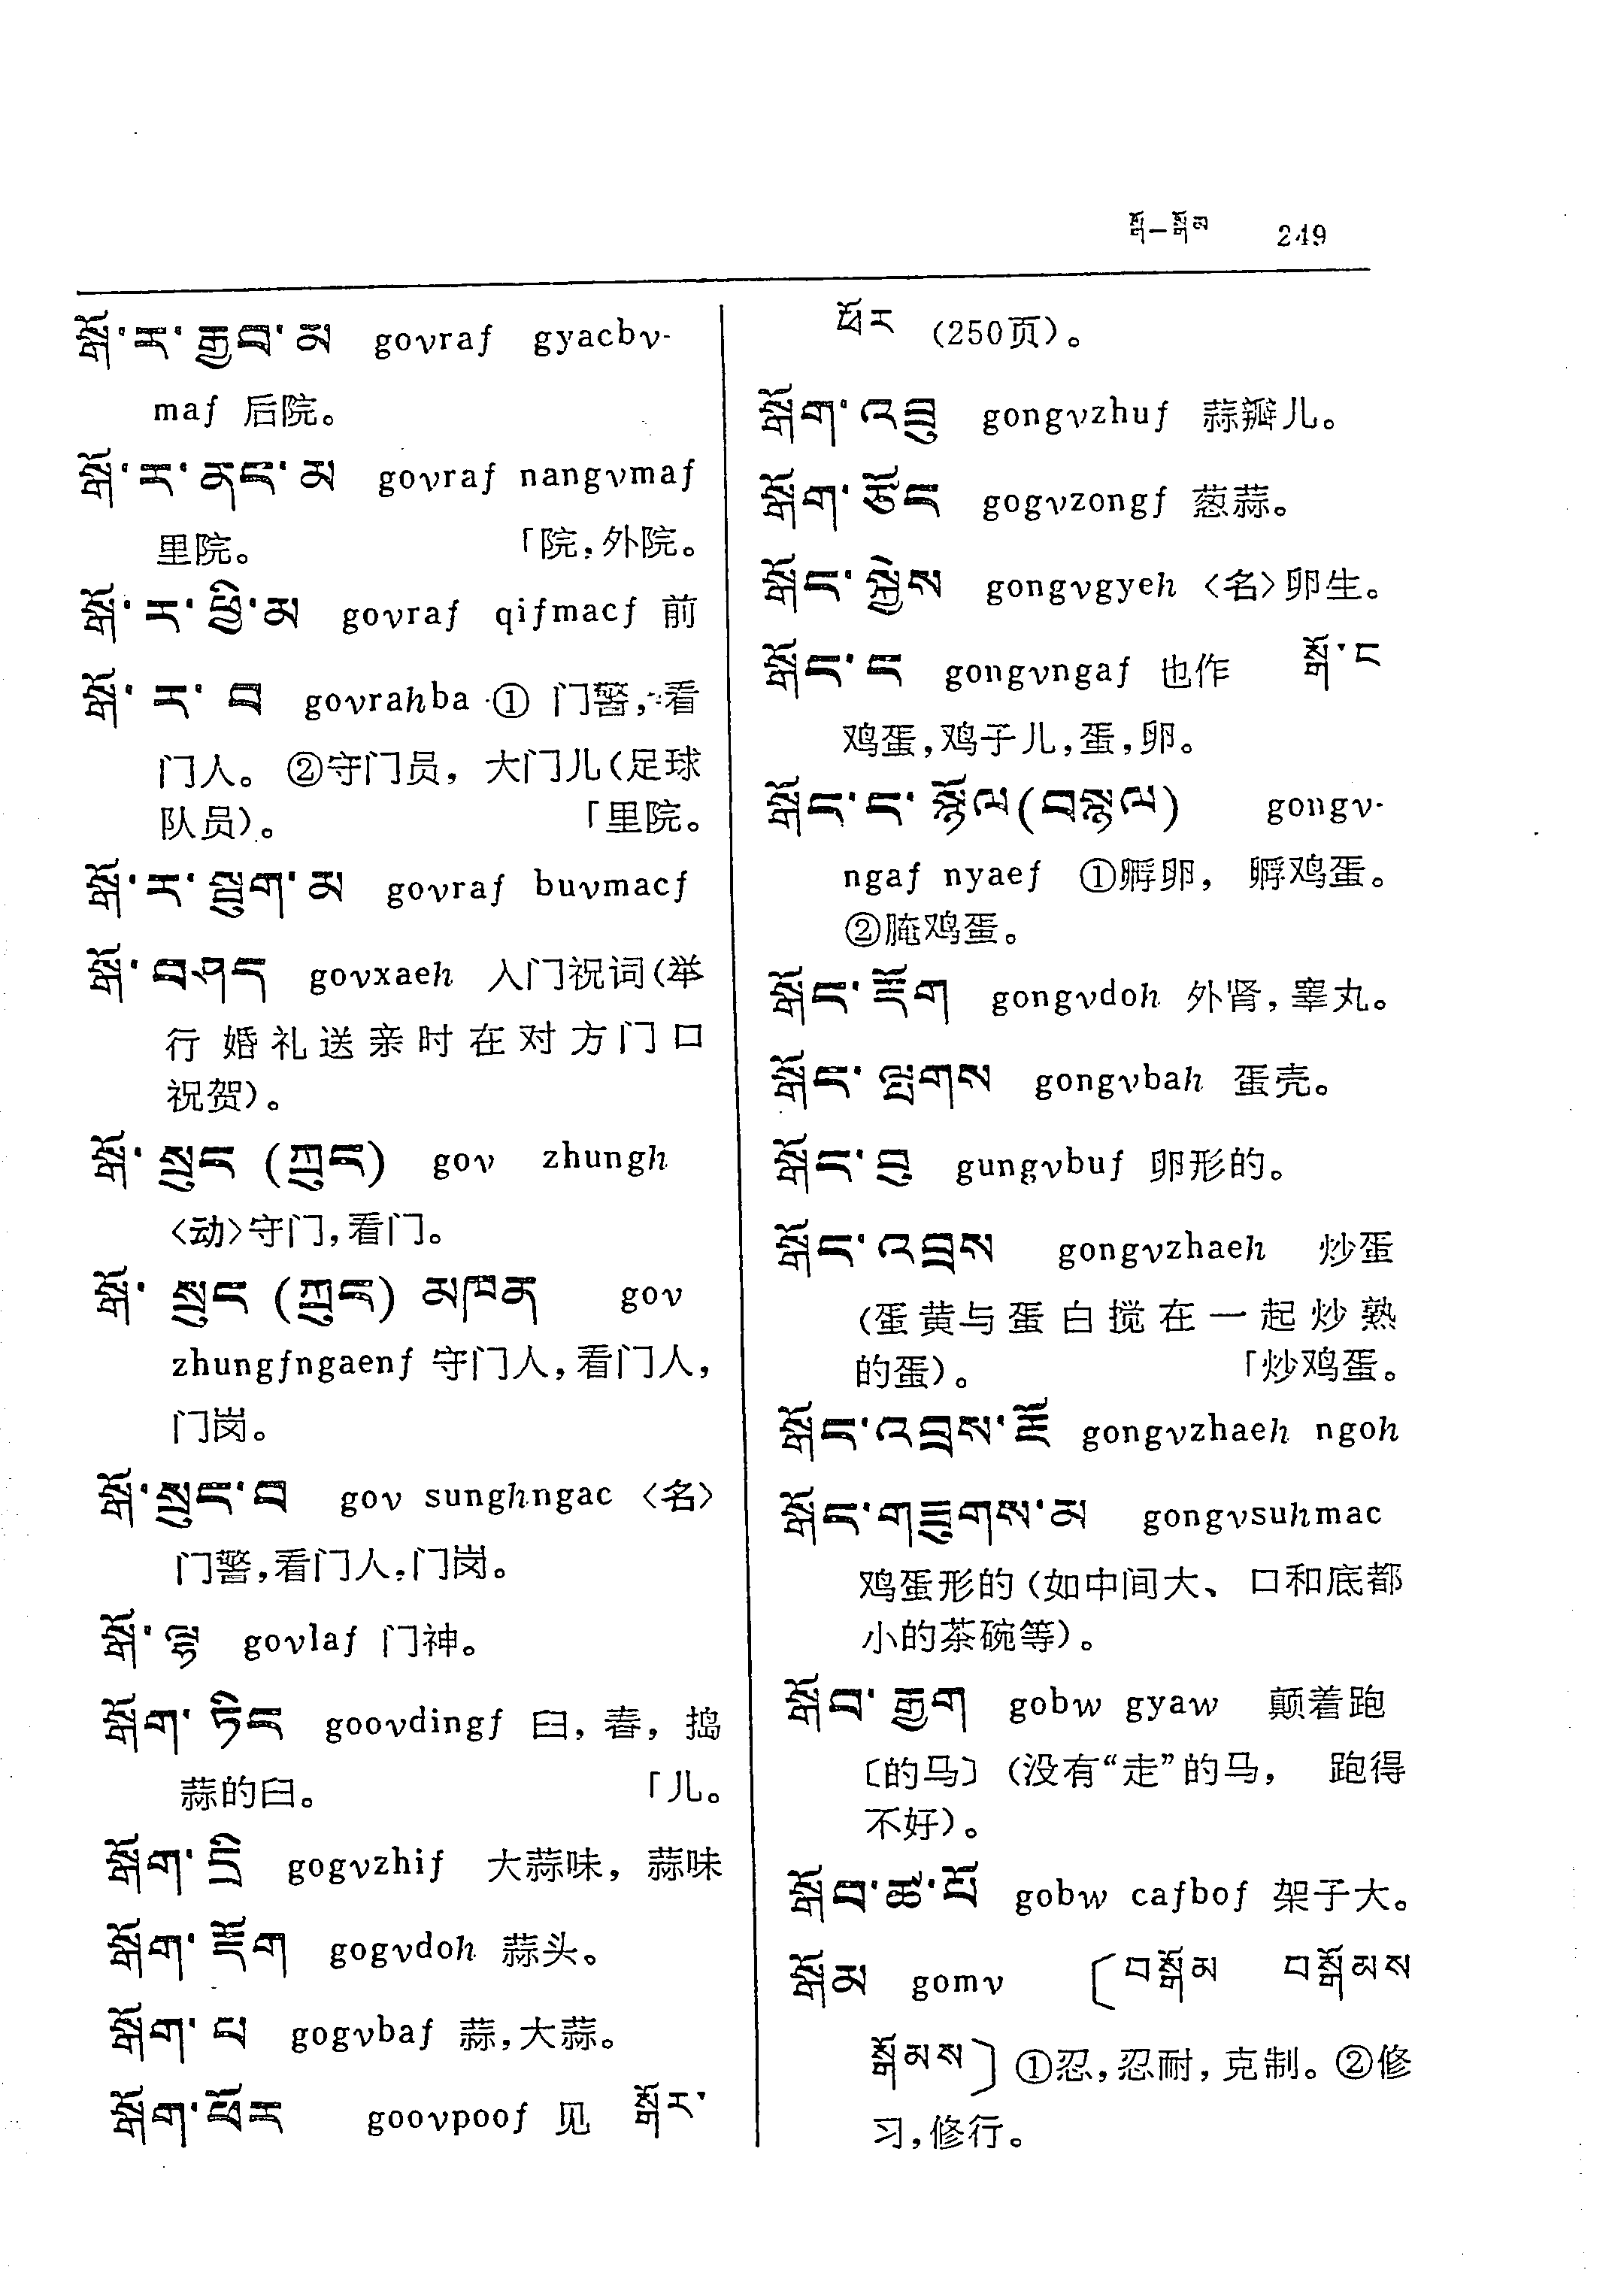 སྒོ—སྒོམ 249
སྒོ་ར་རྒྱབ་མ govraf gyacbv-
maf 后院。
སྒོ་ར་ནང་མ govraf nangvmaf
里院。 「院,外院。
སྒོ་ར་ཕྱི་མ govraf qifmacf 前
སྒོ་ར་བ govrahba ① 门警,看
门人。 ②守门员，大门儿(足球
队员)。 「里院。
སྒོ་ར་སྦུག་མ govraf buvmacf
སྒོ་བཤད govxaeh 入门祝词(举
行婚礼送亲时在对方门口
祝贺)。
སྒོ་སྲུང (ཀྲུང) gov zhungh
〈动〉守门,看门。
སྒོ་སྲུང (ཀྲུང) མཁན gov
zhungfngaenf 守门人,看门人,
门岗。
སྒོ་སྲུང་བ gov sunghngac 〈名〉
门警,看门人,门岗。
སྒོ་ལྷ govlaf 门神。
སྒོག་ཏིང goovdingf 臼，舂，捣
蒜的臼。 「儿。
སྒོག་དྲི gogvzhif 大蒜味，蒜味
སྒོག་རྡོག gogvdoh 蒜头。
སྒོག་པ gogvbaf 蒜,大蒜。
སྒོག་ཕོར goovpoof 见 སྒོར་
ཕོར (250页)。
སྒོག་འབྲུ gongvzhuf 蒜瓣儿。
སྒོག་ཙོང gogvzongf 葱蒜。
སྒོང་སྐྱེས gongvgyeh 〈名〉卵生。
སྒོང་ང gongvngaf 也作 སྒོ་ང
鸡蛋,鸡子儿,蛋,卵。
སྒོང་ང་སྙོལ(བསྙལ) gongv-
ngaf nyaef ①孵卵， 孵鸡蛋。
②腌鸡蛋。
སྒོང་རྡོག gongvdoh 外肾,睾丸。
སྒོང་ལྤགས gongvbah 蛋壳。
སྒོང་བུ gungvbuf 卵形的。
སྒོང་འབྲས gongvzhaeh 炒蛋
(蛋黄与蛋白搅在一起炒熟
的蛋)。 「炒鸡蛋。
སྒོང་འབྲས་རྔོ gongvzhaeh ngoh
སྒོང་གཟུགས་མ gongvsuhmac
鸡蛋形的(如中间大、口和底都
小的茶碗等)。
སྒོབ་རྒྱག gobw gyaw 颠着跑
〔的马〕(没有“走”的马， 跑得
不好)。
སྒོབ་ཚ་པོ gobw cafbof 架子大。
སྒོམ gomv 〔བསྒོམ བསྒོམས
སྒོམས〕①忍,忍耐,克制。②修
习,修行。